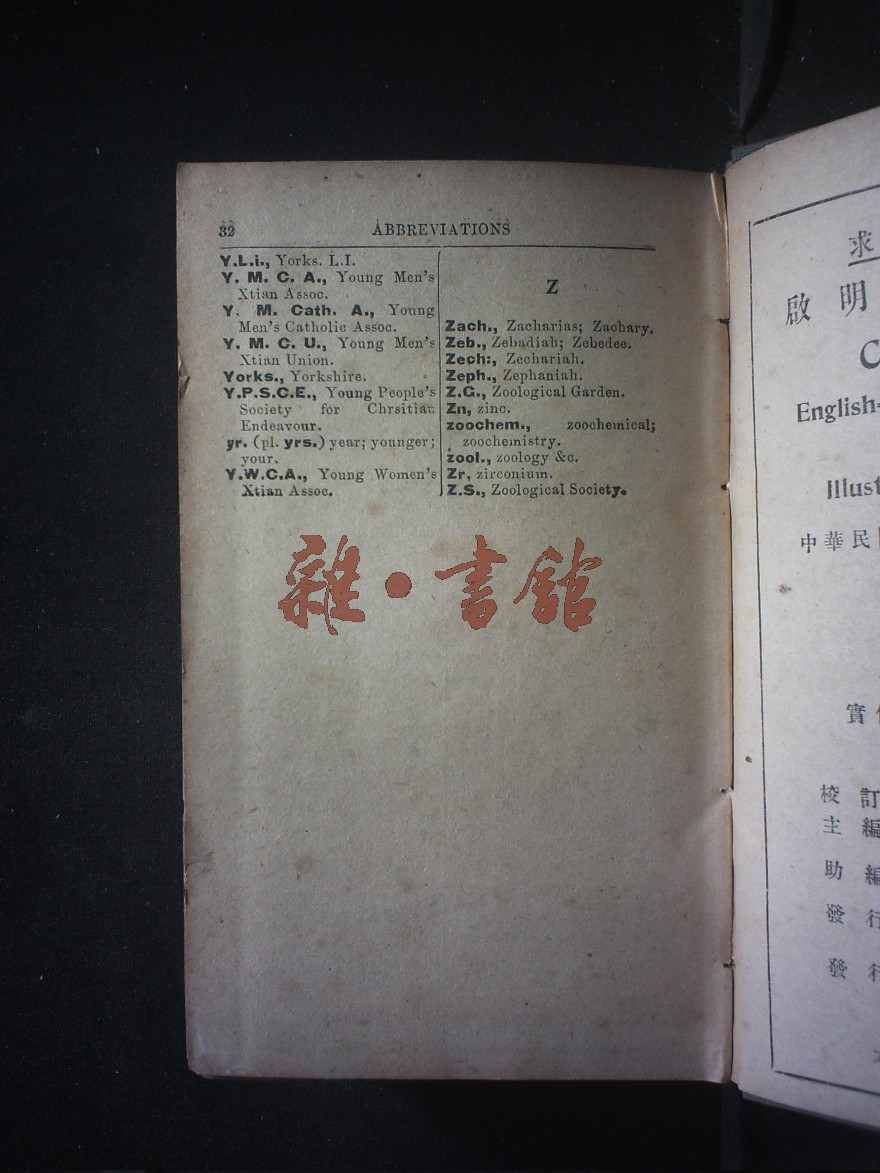 32
ABBREVIATIONS
Y.L.i., Yorks. L.I.
Y. M. C. A., Young Men's
Xtian Assoc.
Y. M. Cath. A., Young
Men's Catholic Assoc.
Y. M. C. U., Young Men's
Xtian Union.
Yorks., Yorkshire.
Y.P.S.C.E., Young People's
Society for Chrsitian
Endeavour.
yr. (pl. yrs.) year; younger;
your.
Y.W.C.A., Young Women's
Xtian Assoc.
Z
Zach., Zacharias; Zachary.
Zeb., Zebadiah; Zebedee.
Zech:, Zechariah.
Zeph., Zephaniah.
Z.G., Zoological Garden.
Zn, zinc.
zoochem., zoochemical;
zoochemistry.
zool., zoology &c.
Zr, zirconium.
Z.S., Zoological Society.
雜·書館
求
啟明
C
English-
Illust
中華民
實
校訂
主編
助編
發行
發行